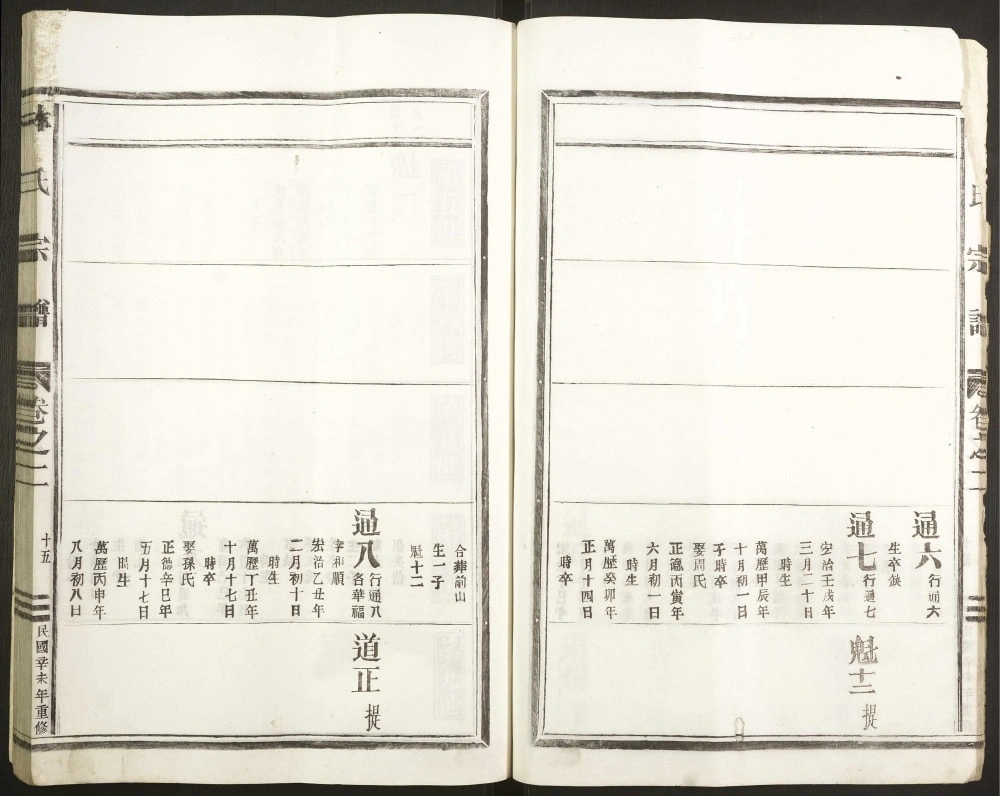 氏宗譜 卷之二
通六 行通六
生卒缺
通七 行通七
宏治壬戌年
三月二十日
時生
萬歷甲辰年
十月初一日
子時卒
娶周氏
正德丙寅年
六月初一日
時生
萬歷癸卯年
正月十四日
時卒
魁十二 提
合葬前山
生一子
魁十二
通八 行通八
名華福
字和順
宏治乙丑年
二月初十日
時生
萬歷丁丑年
十月十七日
時卒
娶孫氏
正德辛巳年
五月十七日
時生
萬歷丙申年
八月初八日
道正 提
氏宗譜 卷之二 十五 民國辛未年重修